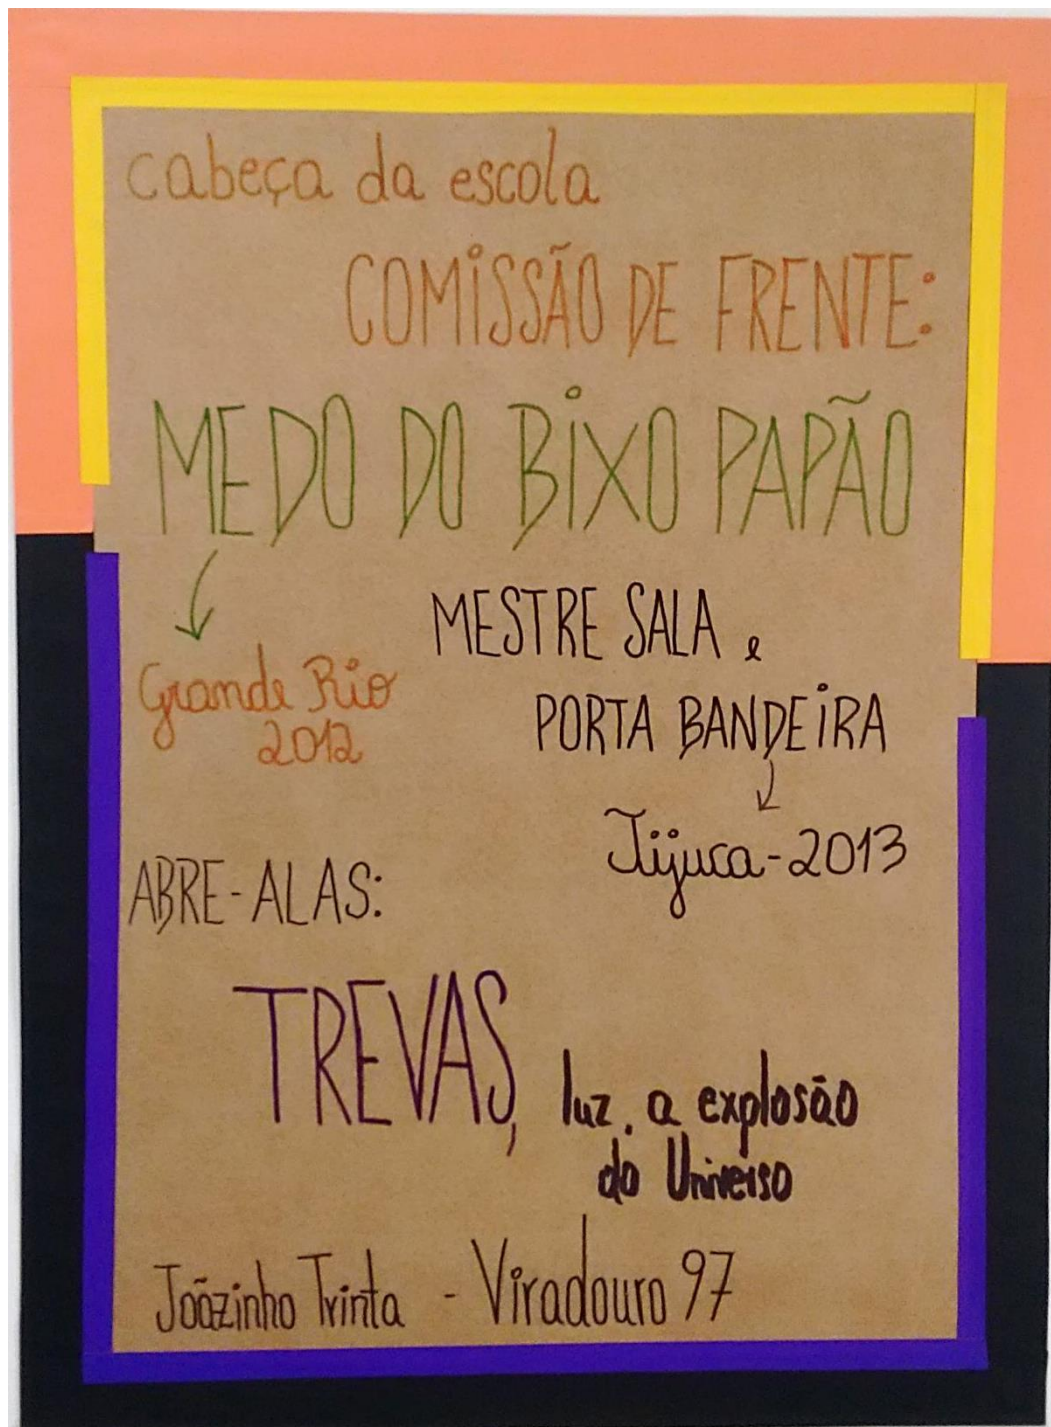 cabeça da escola
COMISSÃO DE FRENTE:
MEDO DO BIXO PAPÃO
Grande Rio
2012
MESTRE SALA e
PORTA BANDEIRA
Tijuca-2013
ABRE-ALAS:
TREVAS, luz, a explosão
do Universo
Joãozinho Trinta - Viradouro 97